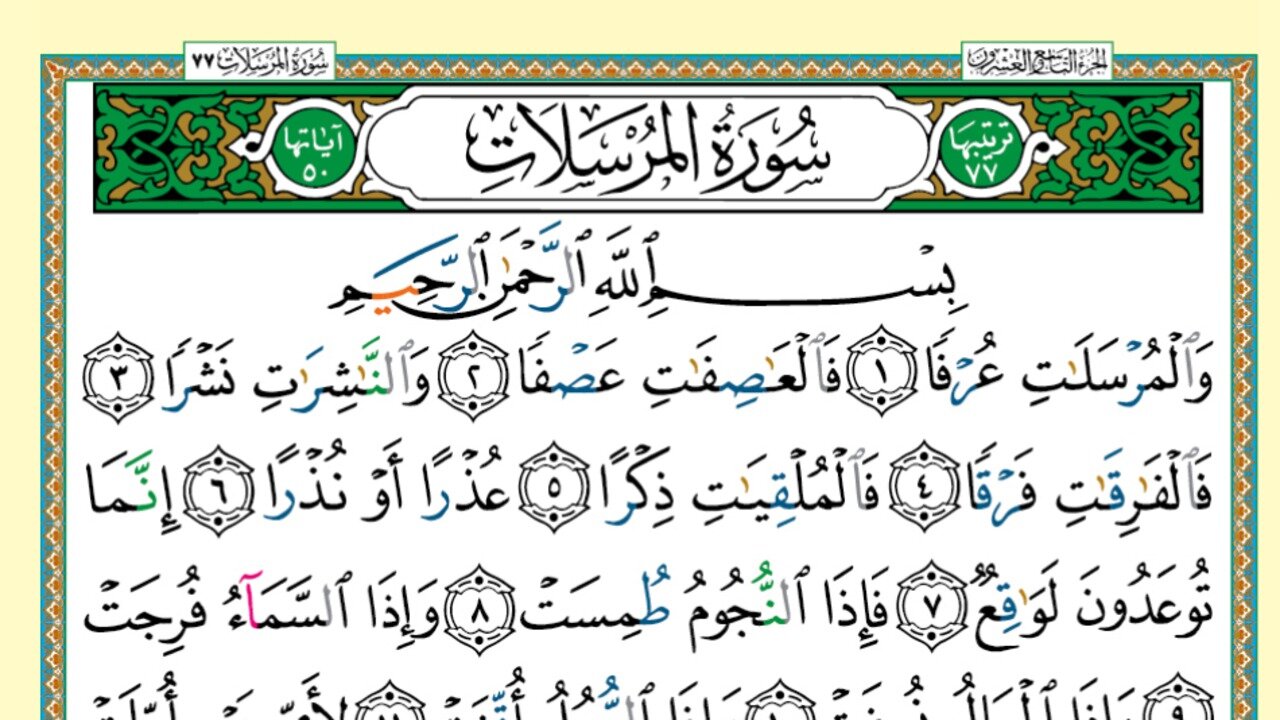 الجزء التاسع والعشرون
سورة المرسلات ٧٧
ترتيبها ٧٧
سُورَةُ المُرْسَلَاتِ
آياتها ٥٠
بِسْمِ ٱللَّهِ ٱلرَّحْمَٰنِ ٱلرَّحِيمِ
وَٱلْمُرْسَلَٰتِ عُرْفًا ١ فَٱلْعَٰصِفَٰتِ عَصْفًا ٢ وَٱلنَّٰشِرَٰتِ نَشْرًا ٣
فَٱلْفَٰرِقَٰتِ فَرْقًا ٤ فَٱلْمُلْقِيَٰتِ ذِكْرًا ٥ عُذْرًا أَوْ نُذْرًا ٦ إِنَّمَا
تُوعَدُونَ لَوَٰقِعٌ ٧ فَإِذَا ٱلنُّجُومُ طُمِسَتْ ٨ وَإِذَا ٱلسَّمَآءُ فُرِجَتْ
٩ وَإِذَا ٱلْجِبَالُ نُسِفَتْ ١٠ وَإِذَا ٱلرُّسُلُ أُقِّتَتْ ١١ لِأَىِّ يَوْمٍ أُجِّلَتْ